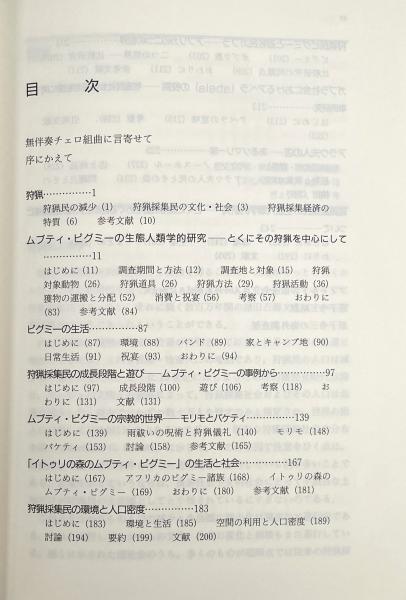 目 次
無伴奏チェロ組曲に言寄せて
序にかえて
狩猟……………1
狩猟民の減少 (1) 狩猟採集民の文化・社会 (3) 狩猟採集経済の
特質 (6) 参考文献 (10)
ムブティ・ピグミーの生態人類学的研究──とくにその狩猟を中心にして
……………11
はじめに (11) 調査期間と方法 (12) 調査地と対象 (15) 狩猟
対象動物 (26) 狩猟道具 (26) 狩猟方法 (29) 狩猟活動 (36)
獲物の運搬と分配 (52) 消費と祝宴 (56) 考察 (57) おわりに
(83) 参考文献 (84)
ピグミーの生活……………87
はじめに (87) 環境 (88) バンド (89) 家とキャンプ地 (90)
日常生活 (91) 祝宴 (93) おわりに (94)
狩猟採集民の成長段階と遊び──ムブティ・ピグミーの事例から……………97
はじめに (97) 成長段階 (100) 遊び (106) 考察 (118) お
わりに (131) 文献 (131)
ムブティ・ピグミーの宗教的世界──モリモとバケティ……………139
はじめに (139) 雨祓いの呪術と狩猟儀礼 (140) モリモ (148)
バケティ (153) 討論 (158) 参考文献 (165)
「イトゥリの森のムブティ・ピグミー」の生活と社会……………167
はじめに (167) アフリカのピグミー諸族 (168) イトゥリの森の
ムブティ・ピグミー (169) おわりに (180) 参考文献 (181)
狩猟採集民の環境と人口密度……………183
はじめに (183) 環境と生活 (185) 空間の利用と人口密度 (189)
討論 (194) 要約 (199) 文献 (200)